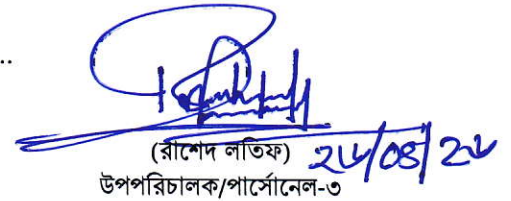 ..
(রাশেদ লতিফ) ২৬/০৪/২৬
উপপরিচালক/পার্সোনেল-৩